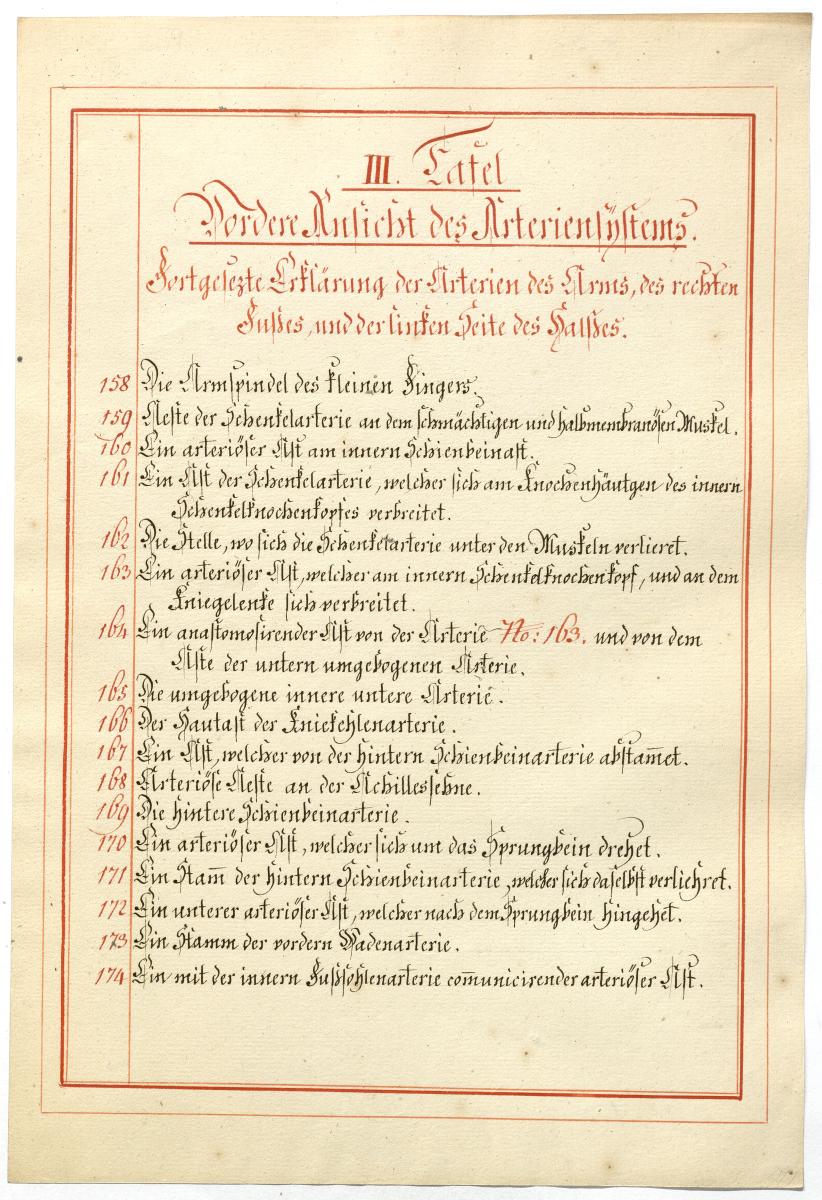 III. Tafel
Vordere Ansicht des Arteriensystems.
Fortgesezte Erklärung der Arterien des Arms, des rechten
Fußes, und der linken Seite des Halßes.
158 Die Armspindel des kleinen Fingers.
159 Aeste der Schenkelarterie an dem schmächtigen und halbmembranösen Muskel.
160 Ein arteriöser Ast am innern Schienbeinast.
161 Ein Ast der Schenkelarterie, welcher sich am Knochenhäutgen des innern
Schenkelknochenkopfes verbreitet.
162 Die Stelle, wo sich die Schenkelarterie unter den Muskeln verlieret.
163 Ein arteriöser Ast, welcher am innern Schenkelknochenkopf, und an dem
Kniegelenke sich verbreitet.
164 Ein anastomosirender Ast von der Arterie No: 163. und von dem
Aste der untern umgebogenen Arterie.
165 Die umgebogene innere untere Arterie.
166 Der Hautast der Kniekehlenarterie.
167 Ein Ast, welcher von der hintern Schienbeinarterie abstam̅et.
168 Arteriöse Aeste an der Achillessehne.
169 Die hintere Schienbeinarterie.
170 Ein arteriöser Ast, welcher sich um das Sprungbein drehet.
171 Ein Stam̅ der hintern Schienbeinarterie, welcher sich daselbst verliehret.
172 Ein unterer arteriöser Ast, welcher nach dem Sprungbein hingehet.
173 Ein Stamm der vordern Wadenarterie.
174 Ein mit der innern Fußsohlenarterie com̅unicirender arteriöser Ast.